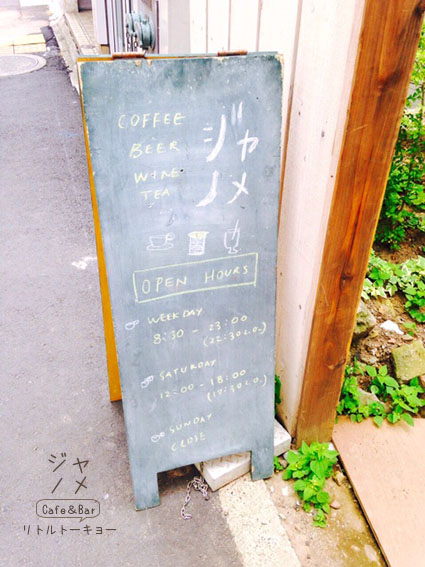 COFFEE
BEER
WINE
TEA
ジャ
ノメ
OPEN HOURS
WEEKDAY
8:30 - 23:00
(22:30 L.O.)
SATURDAY
12:00 - 18:00
(17:30 L.O.)
SUNDAY
CLOSE
ジャ
ノメ
Cafe&Bar
リトルトーキョー